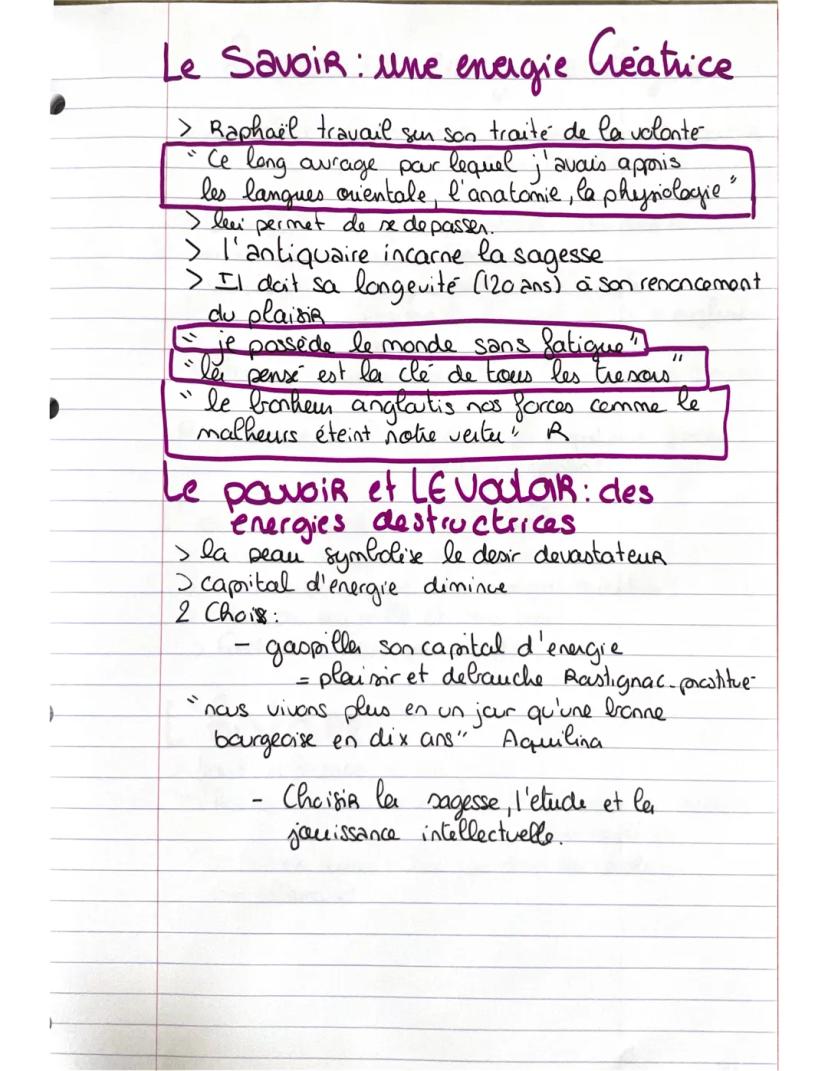 Le Savoir : une energie Créatrice
> Raphaël travail sur son traité de la volonté
"Ce long ouvrage pour lequel j'avais appris
les langues orientale, l'anatomie, la physiologie"
> lui permet de se depasser.
> l'antiquaire incarne la sagesse
> Il doit sa longevité (120 ans) à son renoncement
du plaisir
"je possède le monde sans fatigue"
"la pensé est la clé de tous les tresors"
"le bonheur engloutis nos forces comme le
malheurs éteint notre vertu" R
Le pouvoir et LE Vouloir : des
energies destructrices
> la peau symbolise le desir devastateur
> capital d'energie diminue
2 Choix :
- gaspiller son capital d'energie
= plaisir et debauche Rastignac - prostitué
"nous vivons plus en un jour qu'une bonne
bourgeoise en dix ans" Aquilina
- Choisir la sagesse, l'etude et la
jouissance intellectuelle.